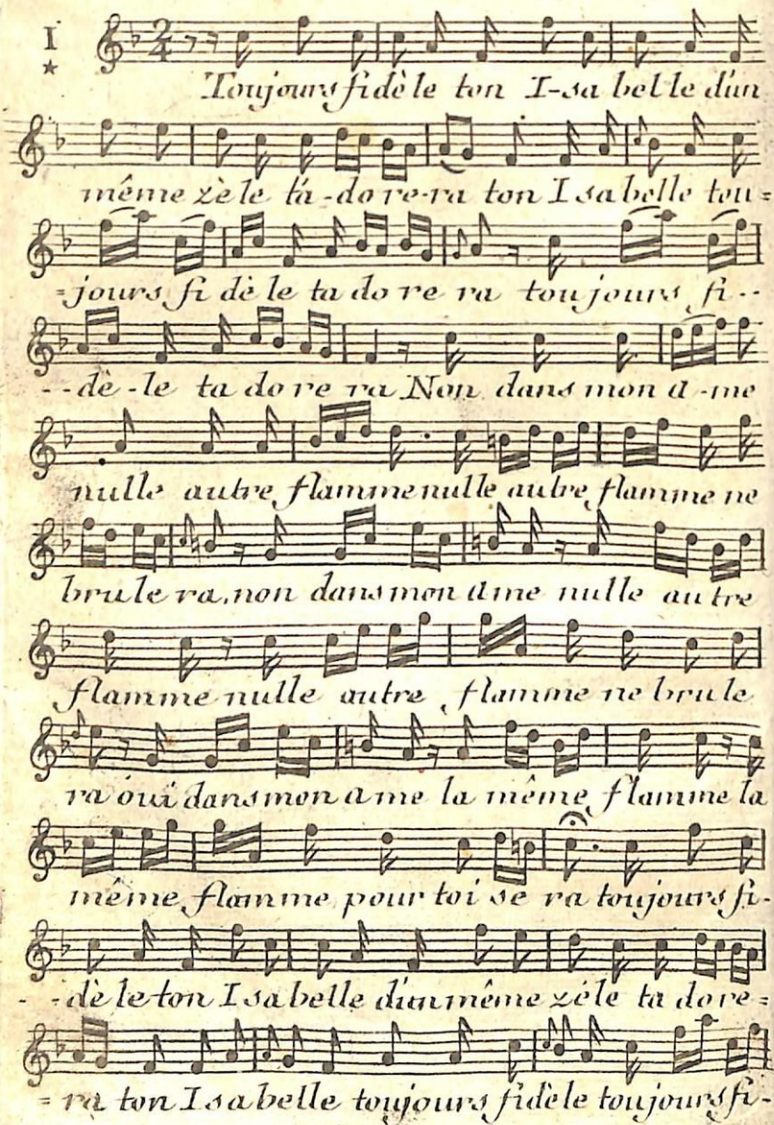 I
2
4
Toujours fidèle ton I-sa bel le d'un
même zèle t'a-do re-ra ton I sa belle tou=
=jours fi dè le ta do re ra tou jours fi--
--dè-le ta do re ra Non dans mon a-me
nulle autre flamme nulle autre flamme ne
brule ra, non dans mon ame nulle au tre
flamme nulle autre flamme ne bru le
ra oui dans mon ame la même flamme la
même flamme pour toi se ra toujours fi-
--dè le ton I sa belle d'un même zèle ta do re=
=ra ton I sa belle toujours fidèle toujours fi-